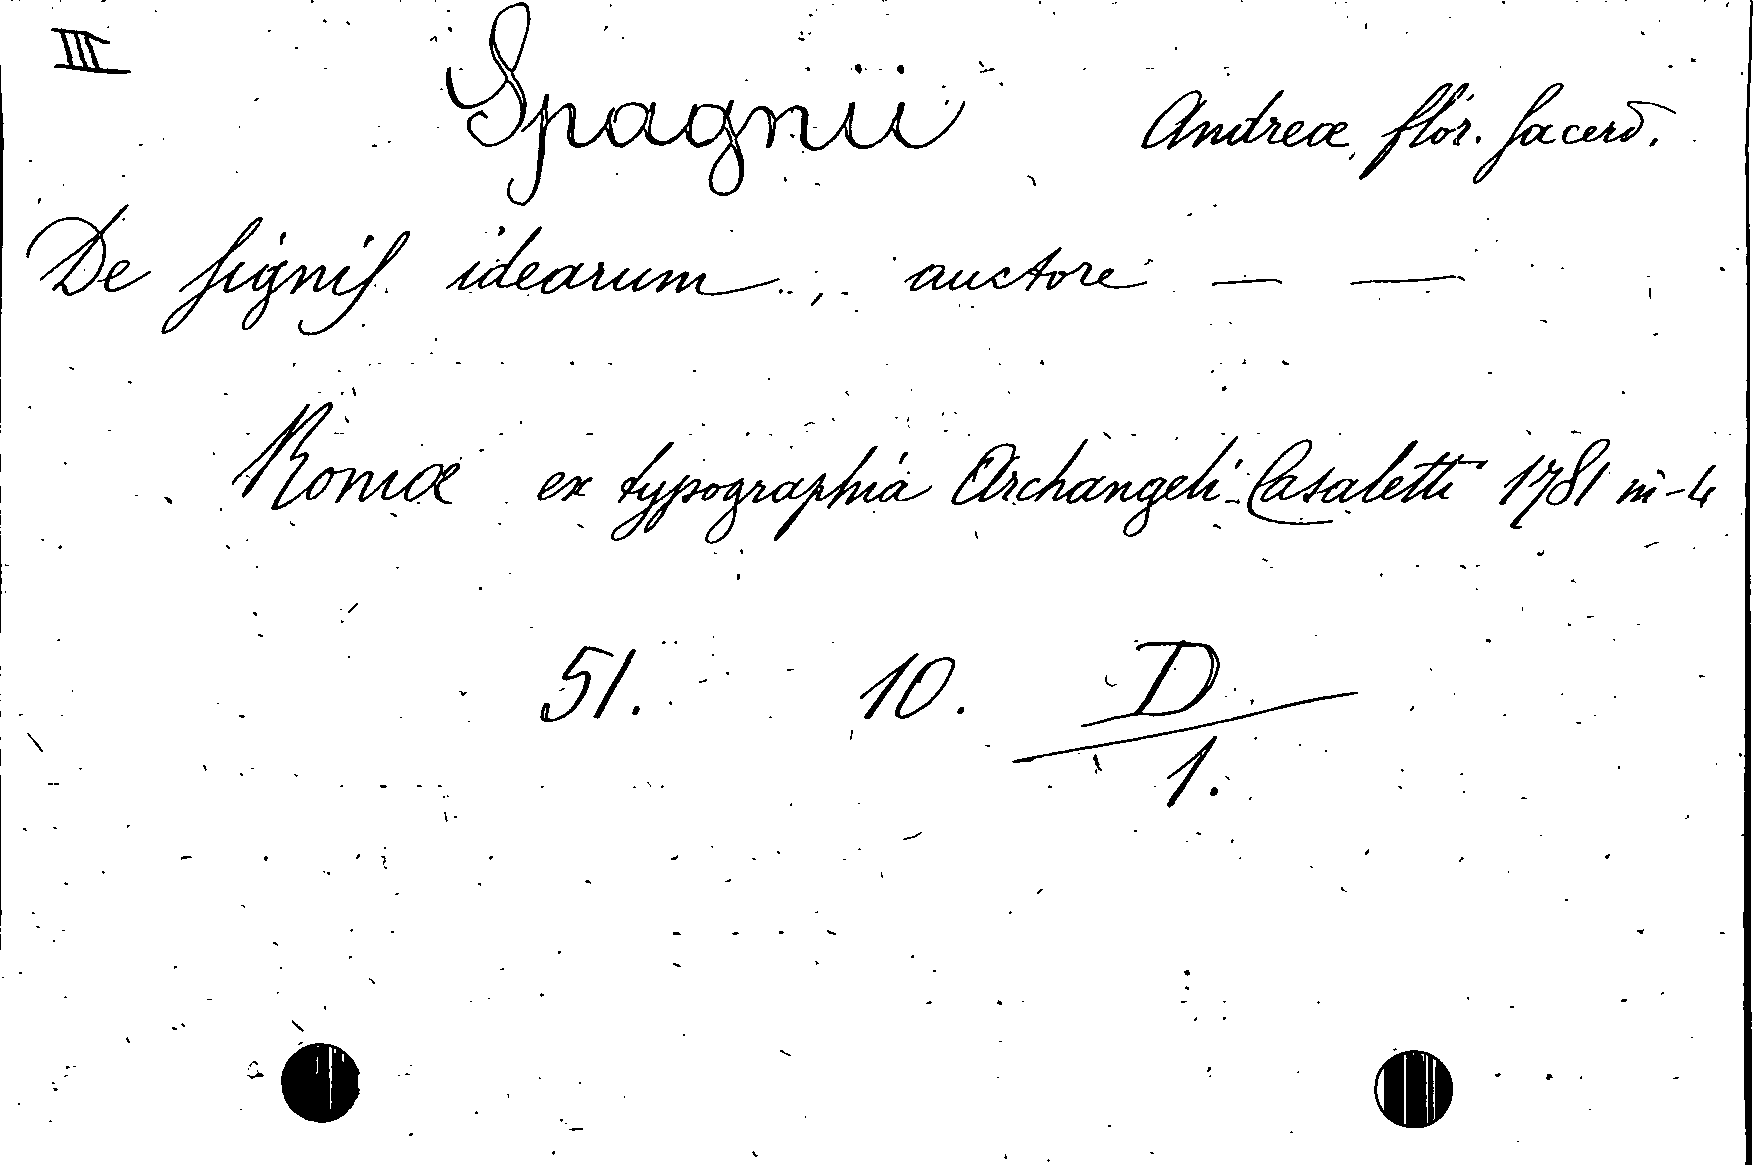 III
Spagnii Andreæ, flor. sacerd.
De signis idearum, auctore — —
Romæ ex typographia Archangeli Casaletti 1781 in-4
51. 10. D
1.